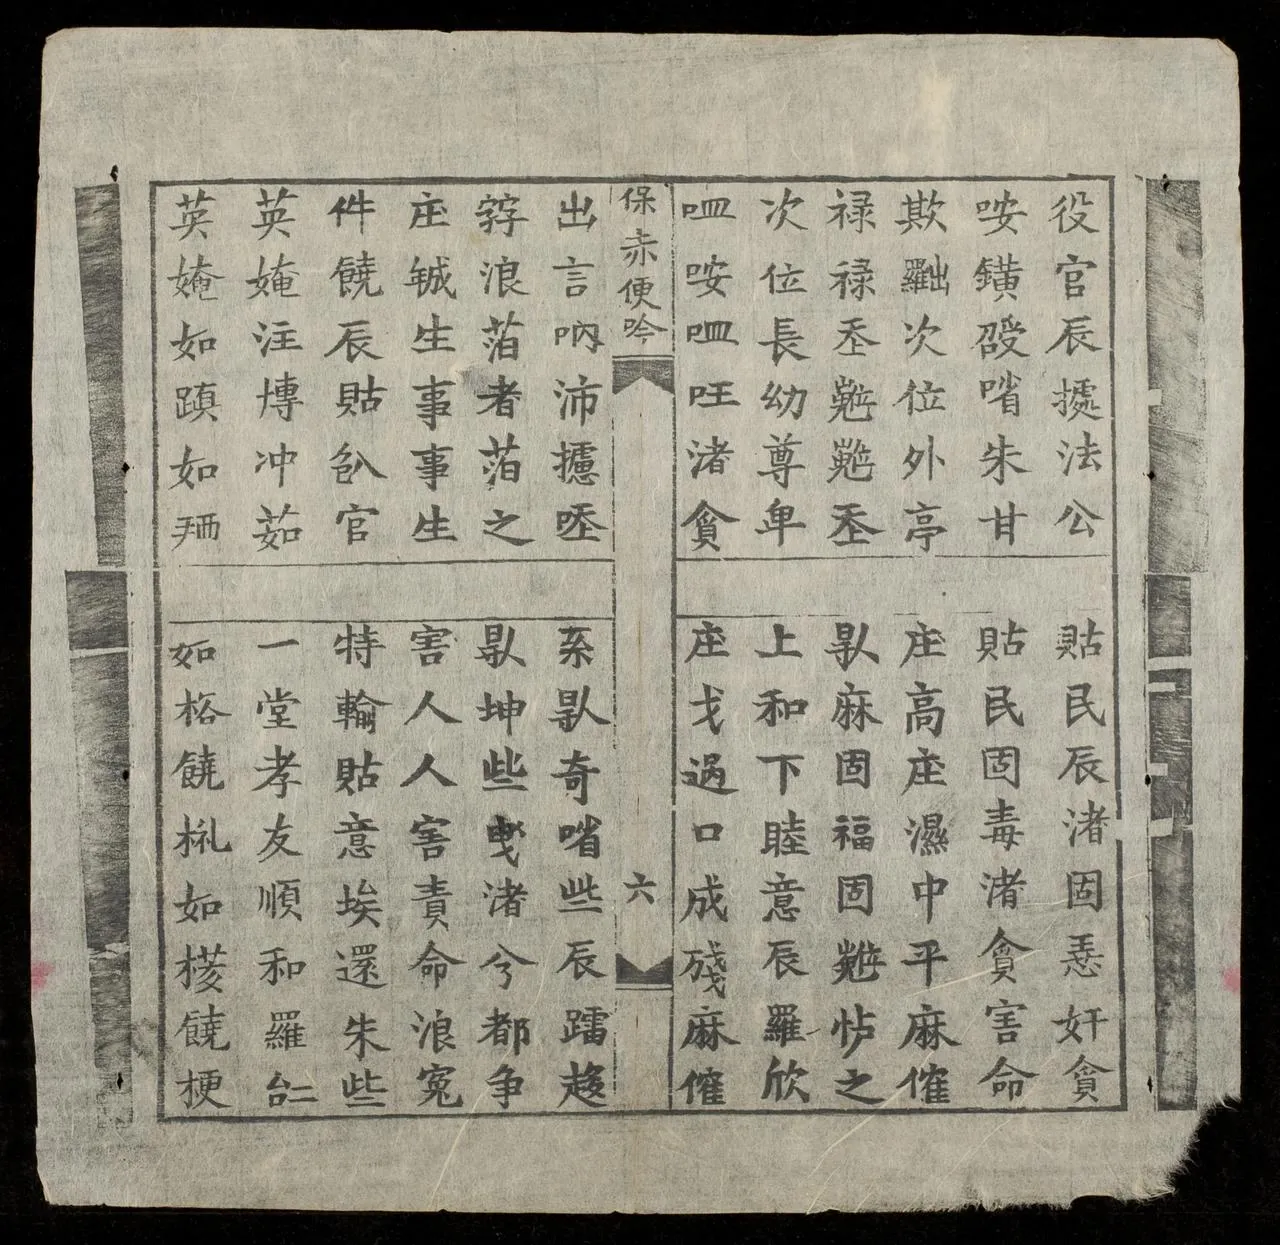 役官辰㨿法公
貼民辰渚固恶奸貪
咹鐄𠰚朱甘
貼民固毒渚貪害命
欺𦋦次位外亭
庄高庄濕中平麻傕
禄禄丕丕
麻固福固怙之
次位長幼尊卑
上和下睦意辰羅欣
咹㕵渚貪
庄戈過口成殘麻傕
保赤便吟
六
出言吶沛㨿
系奇𠰚些辰蹋趍
浪萡者萡之
坤些曳渚兮都争
庄生事事生
害人人害責命浪寃
件饒辰貼官
特輸貼意埃還朱些
英㛪注博冲茹
一堂孝友順和羅
英㛪如蹎如
如饒如饒梗